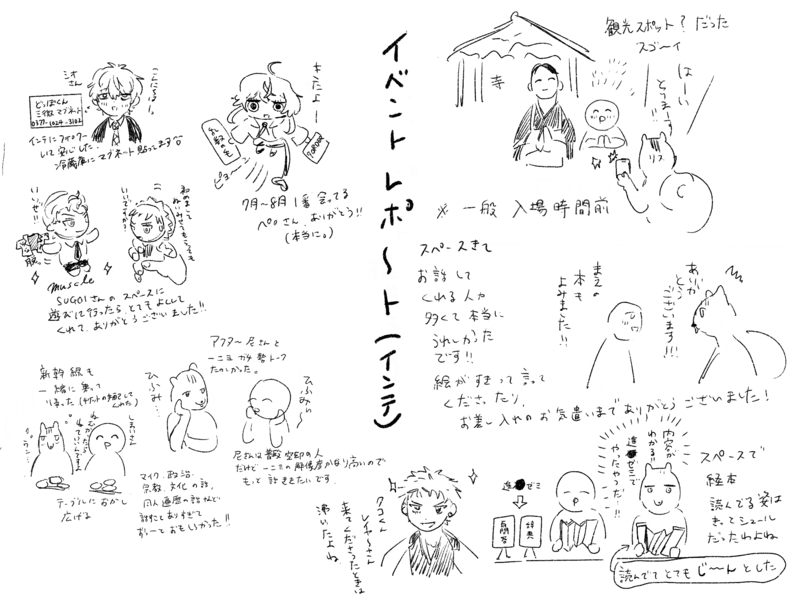 イベントレポ～ト(インテ)
観光スポット?だった
スゴ～イ
はーい
とりまーす!!
寺
リス
※一般入場時間前
スペースきて
お話して
くれる人が
多くて本当に
うれしかった
です!!
絵がすきって言って
くださったり、
お差し入れのお気遣いまでありがとうございました!
まえの
本も
よみました!!
ありが
とう
ございます!!!
内容が
わかる!!
進●ゼミで
やったやつだ…!!
スペースで
経本
読んでる姿は
きっとシュール
だったわよね
読んでてとてもじ～んとした
進●ゼミ
辞典
タコくん
レイヤーさん
来てくださったときは
沸いたよね
シオさん
こんにちは～
どっぽくん
三徹マグネット
インテにフォロワー
いて安心した。
冷蔵庫にマグネット貼ってます
きたよー
ピョ～ン
7月～8月1番会ってる
ペpさん、ありがとう!!
(本当に。)
muscle
SUGOIさんのスペースに
遊びに行ったらとてもよくして
くれて、ありがとうございました!!
新幹線も
一緒に乗って
くれた
テーブルにおかし
広げる
ひふみ…
マイク、政治、
宗教、文化の話、
同人遍歴の話なんで
ずーっとおもしろかった!!
アフター尼さんと
一二三ガチ勢トーク
たのしかった。
ひふみぃ～
尼さんは普段空却の人
だけど一二三の解像度がより高いので
もっと話ききたいです。